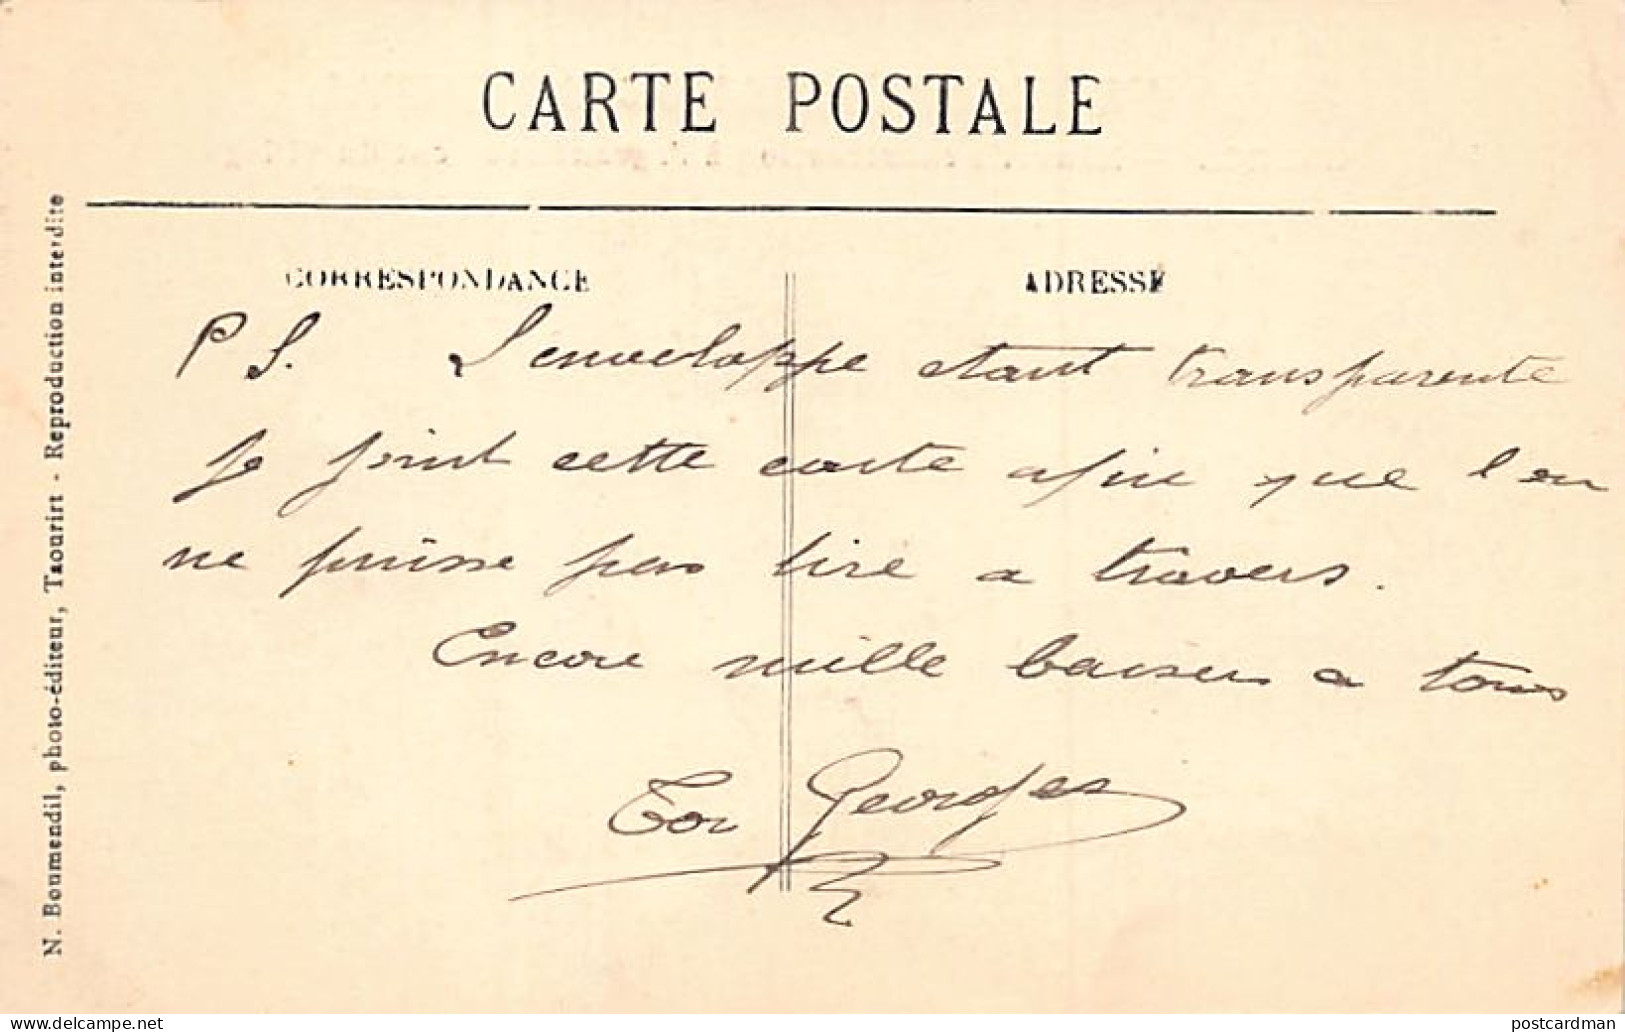 CARTE POSTALE
CORRESPONDANCE
ADRESSE
P S. L'enveloppe etant transparente
je joint cette carte afin que l'on
ne puisse pas lire a travers.
Encore mille baisers a tous
Georges
N. Boumendil, photo-éditeur, Taourirt - Reproduction interdite
delcampe.net
postcardman